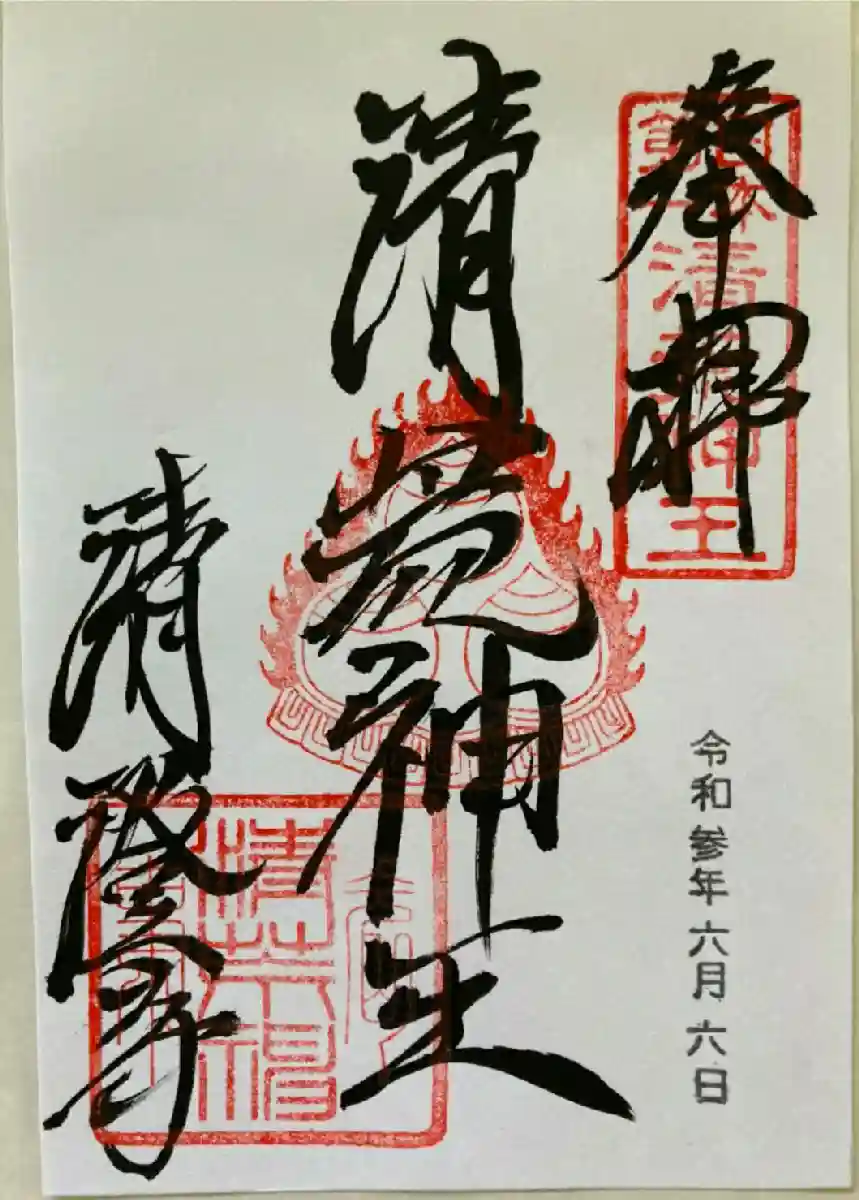 奉拝
日本第一清荒神王
令和参年六月六日
清荒神王
清澄寺